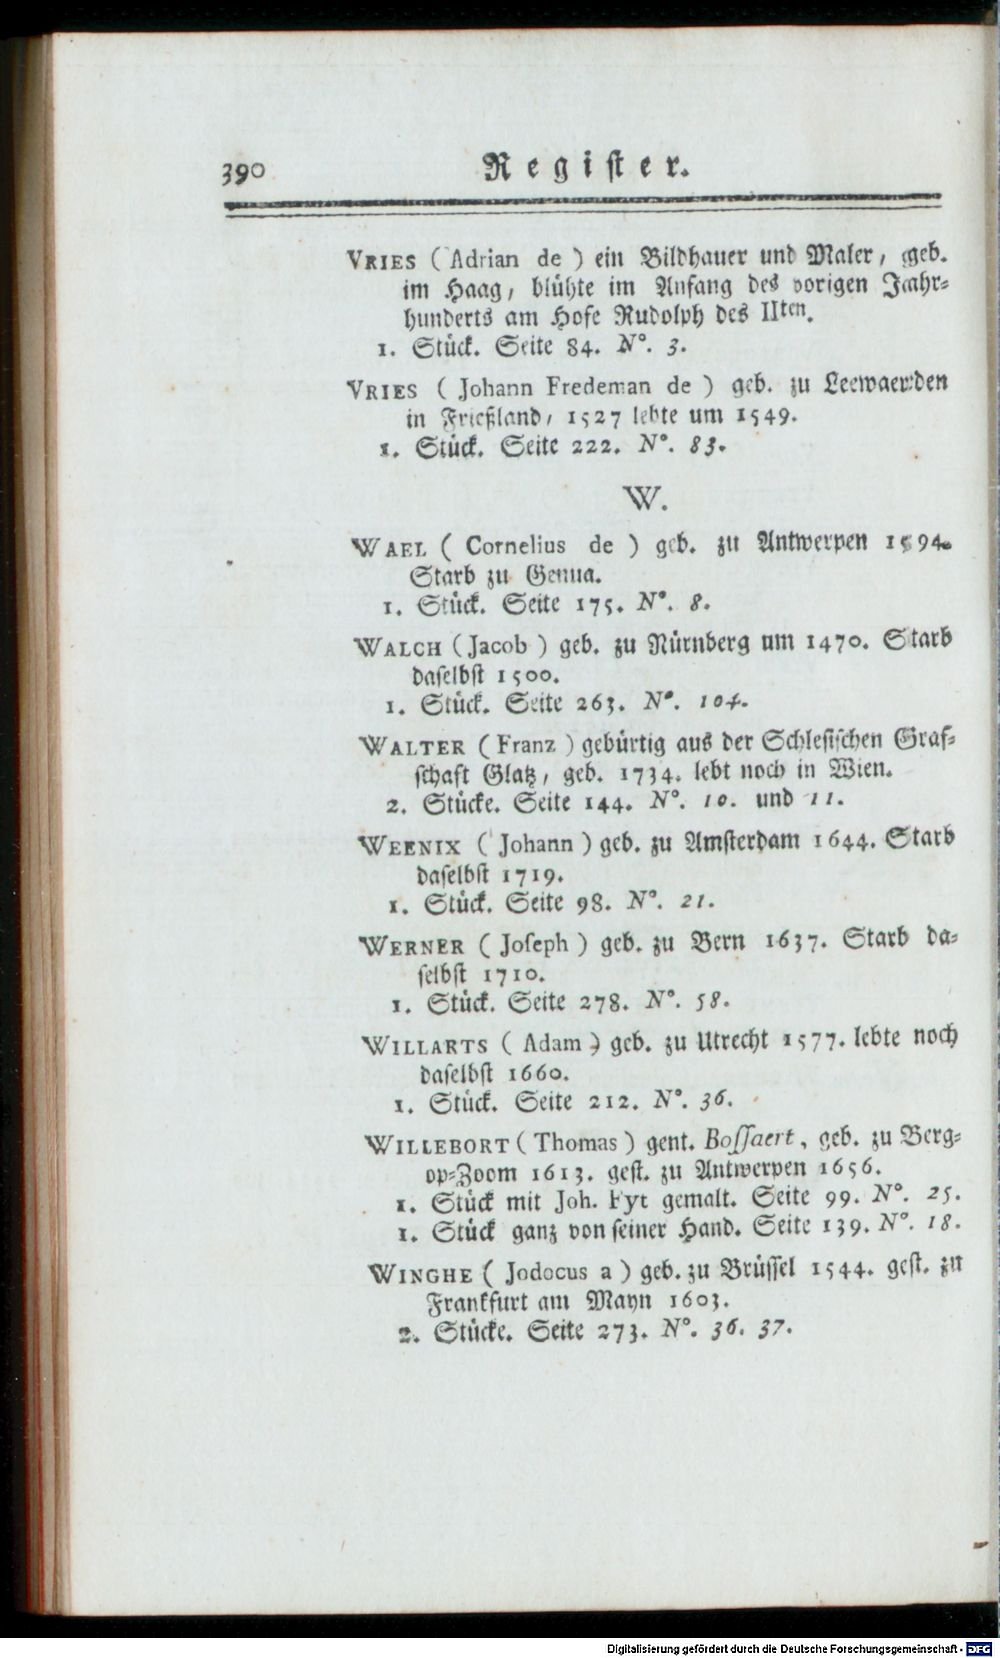 390 Register.
VRIES (Adrian de) ein Bildhauer und Maler, geb.
im Haag, blühte im Anfang des vorigen Jahr-
hunderts am Hofe Rudolph des IIten.
1. Stück. Seite 84. N°. 3.
VRIES (Johann Fredeman de) geb. zu Leewaerden
in Frießland, 1527 lebte um 1549.
1. Stück. Seite 222. N°. 83.
W.
WAEL (Cornelius de) geb. zu Antwerpen 1594.
Starb zu Genua.
1. Stück. Seite 175. N°. 8.
WALCH (Jacob) geb. zu Nürnberg um 1470. Starb
daselbst 1500.
1. Stück. Seite 263. N°. 104.
WALTER (Franz) gebürtig aus der Schlesischen Graf-
schaft Glatz, geb. 1734. lebt noch in Wien.
2. Stücke. Seite 144. N°. 10. und 11.
WEENIX (Johann) geb. zu Amsterdam 1644. Starb
daselbst 1719.
1. Stück. Seite 98. N°. 21.
WERNER (Joseph) geb. zu Bern 1637. Starb da-
selbst 1710.
1. Stück. Seite 278. N°. 58.
WILLARTS (Adam) geb. zu Utrecht 1577. lebte noch
daselbst 1660.
1. Stück. Seite 212. N°. 36.
WILLEBORT (Thomas) gent. Bossaert, geb. zu Berg-
op-Zoom 1613. gest. zu Antwerpen 1656.
1. Stück mit Joh. Fyt gemalt. Seite 99. N°. 25.
1. Stück ganz von seiner Hand. Seite 139. N°. 18.
WINGHE (Jodocus a) geb. zu Brüssel 1544. gest. zu
Frankfurt am Mayn 1603.
2. Stücke. Seite 273. N°. 36. 37.
Digitalisierung gefördert durch die Deutsche Forschungsgemeinschaft - DFG